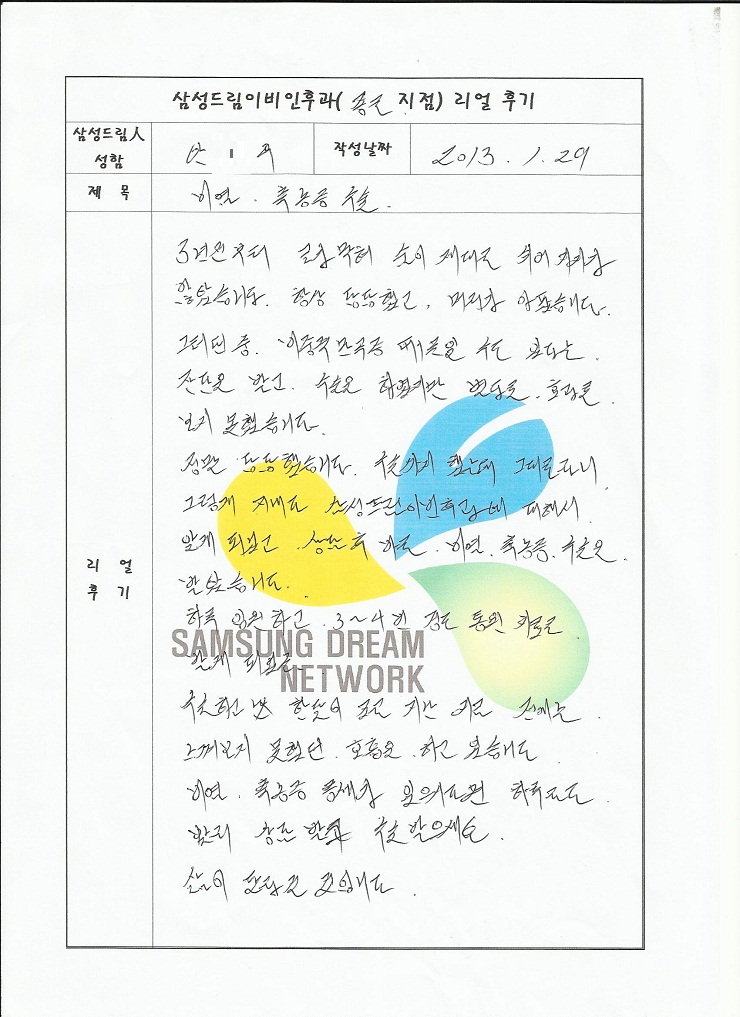 삼성드림이비인후과( 종로 지점) 리얼 후기
삼성드림人
성함
안 ㅣ
작성날짜
2013. 1. 29
제 목
비염. 축농증 수술.
3년전부터 코가 막혀 숨이 제대로 쉬어 지지가
않았습니다. 항상 답답했고, 머리가 아팠습니다.
그러던 중. 비중격만곡증 때문일 수도 있다는.
진단을 받고. 수술을 하였지만 별다른. 효과를
보지 못했습니다.
정말 답답했습니다. 수술까지 했는데 그대로라니
그렇게 지내다 삼성드림이비인후과에 대해서
알게 되었고. 상담 후 바로. 비염. 축농증. 수술을.
받았습니다.
리 얼
후 기
하루 입원하고. 3~4번 정도 통원 치료를
받게 되었고.
SAMSUNG DREAM
NETWORK
수술하고 난 한달이 조금 지난 지금 전에는.
느껴보지 못했던. 호흡을. 하고 있습니다
비염. 축농증 증세가 있으시다면 하루라도.
빨리 상담 받고 수술 받으세요.
삶이 달라질 것입니다.